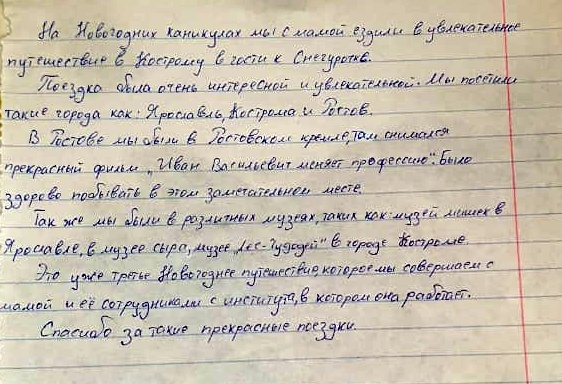 На Новогодних каникулах мы с мамой ездили в увлекательное
путешествие в Кострому в гости к Снегурочке.
Поездка была очень интересной и увлекательной. Мы посетили
такие города как: Ярославль, Кострома и Ростов.
В Ростове мы были в Ростовском кремле, там снимался
прекрасный фильм „Иван Васильевич меняет профессию". Было
здорово побывать в этом замечательном месте.
Так же мы были в различных музеях, таких как: музей мышек в
Ярославле, в музее сыра, музее „Лес-Чудодей" в городе Костроме.
Это уже третье Новогоднее путешествие которое мы совершаем с
мамой и её сотрудниками с института, в котором она работает.
Спасибо за такие прекрасные поездки.